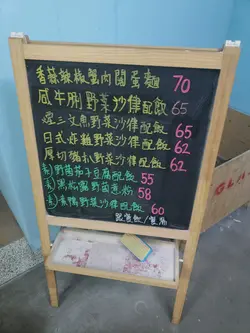 香蒜辣椒蟹肉闊蛋麵 70
咸牛脷野菜沙律配飯 65
煙三文魚野菜沙律配飯 65
日式炸雞野菜沙律配飯 62
厚切豬扒野菜沙律配飯 62
素)野番茄子豆腐配飯 55
素)黑松露野菌意粉 58
素)素鴨野菜沙律配飯 60